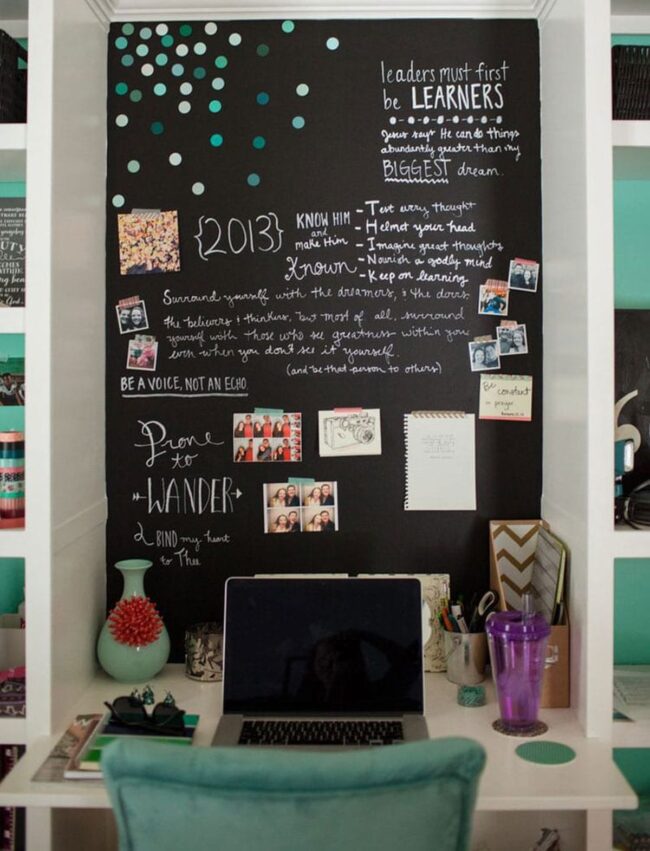 leaders must first
be LEARNERS
Jesus says He can do things
abundantly greater than my
BIGGEST dream.
{2013}
KNOW HIM
and
make Him
Known
-Test every thought
-Helmet your head
-Imagine great thoughts
-Nourish a godly mind
-Keep on learning
Surround yourself with the dreamers, & the doers
the believers & thinkers, but most of all, surround
yourself with those who see greatness within you
even when you don't see it yourself.
(and be that person to others)
BE A VOICE, NOT AN ECHO.
Be constant
in prayer
Prone
to
WANDER
BIND my heart
to Thee